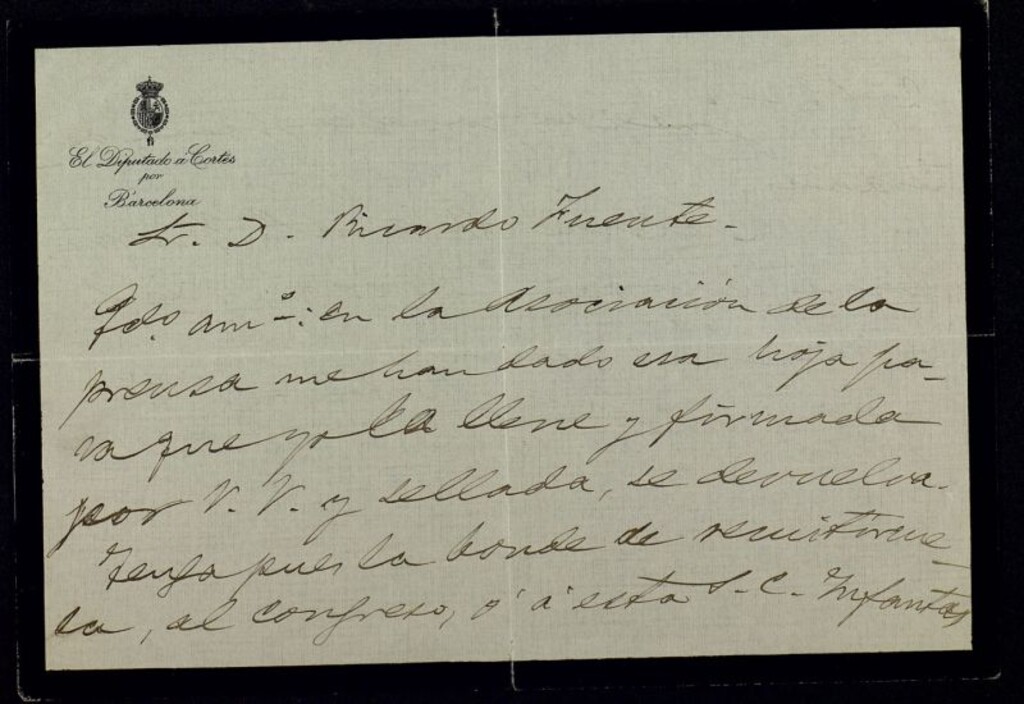 El Diputado á Cortes
por
Barcelona
Sr. D. Ricardo Fuente.
Qdo. amº: en la Asociación de la
prensa me han dado esa hoja pa-
ra que yo la llene y firmada
por V. V. y sellada, se devuelva.
Tenga pues la bonde de remitirme
la, al congreso, ó á esta S. C. Infantas